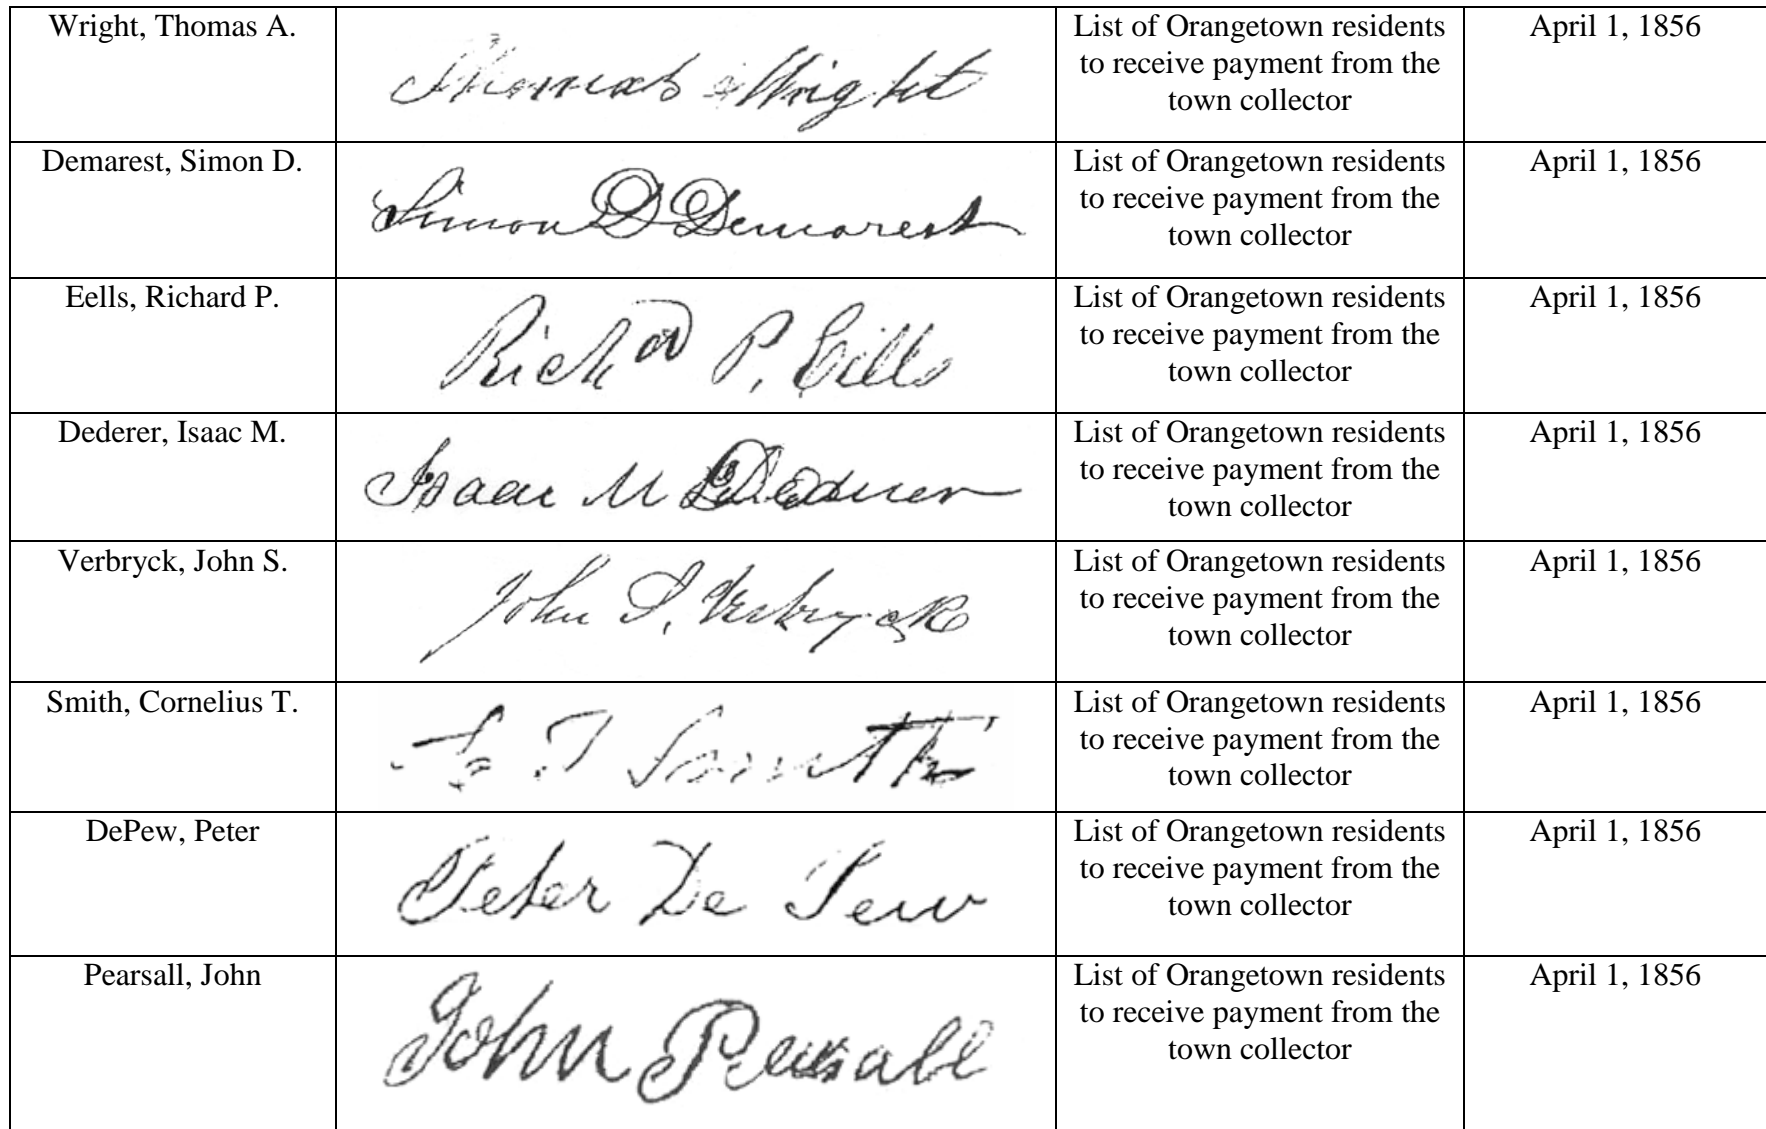 Wright, Thomas A.
Thomas A Wright
List of Orangetown residents
to receive payment from the
town collector
April 1, 1856
Demarest, Simon D.
Simon D Demarest
List of Orangetown residents
to receive payment from the
town collector
April 1, 1856
Eells, Richard P.
Richd P. Eells
List of Orangetown residents
to receive payment from the
town collector
April 1, 1856
Dederer, Isaac M.
Isaac M Dederer
List of Orangetown residents
to receive payment from the
town collector
April 1, 1856
Verbryck, John S.
John S. Verbryck
List of Orangetown residents
to receive payment from the
town collector
April 1, 1856
Smith, Cornelius T.
C T Smith
List of Orangetown residents
to receive payment from the
town collector
April 1, 1856
DePew, Peter
Peter De Pew
List of Orangetown residents
to receive payment from the
town collector
April 1, 1856
Pearsall, John
John Pearsall
List of Orangetown residents
to receive payment from the
town collector
April 1, 1856